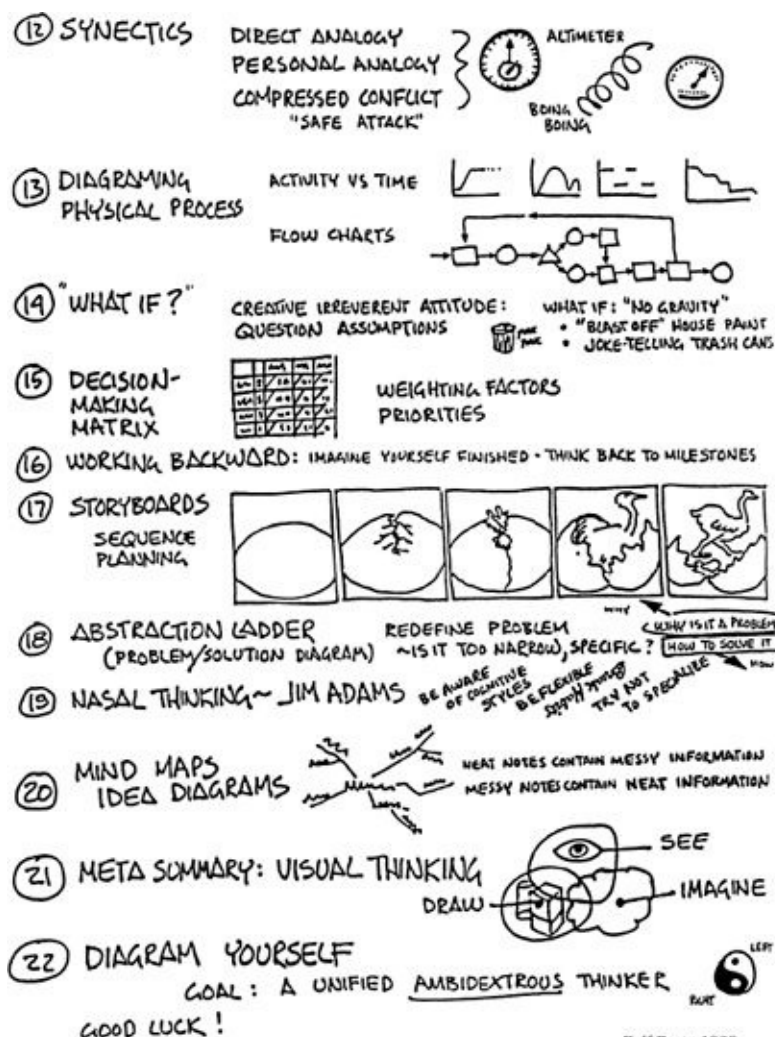 12 SYNECTICS
DIRECT ANALOGY
PERSONAL ANALOGY
COMPRESSED CONFLICT
"SAFE ATTACK"
ALTIMETER
BOING
BOING
13 DIAGRAMING
PHYSICAL PROCESS
ACTIVITY VS TIME
FLOW CHARTS
14 "WHAT IF?"
CREATIVE IRREVERENT ATTITUDE:
QUESTION ASSUMPTIONS
WHAT IF: "NO GRAVITY"
• "BLAST OFF" HOUSE PAINT
• JOKE-TELLING TRASH CANS
15 DECISION-
MAKING
MATRIX
WEIGHTING FACTORS
PRIORITIES
16 WORKING BACKWARD: IMAGINE YOURSELF FINISHED - THINK BACK TO MILESTONES
17 STORYBOARDS
SEQUENCE
PLANNING
18 ABSTRACTION LADDER
(PROBLEM/SOLUTION DIAGRAM)
REDEFINE PROBLEM
~IS IT TOO NARROW, SPECIFIC?
WHY
WHY IS IT A PROBLEM
HOW TO SOLVE IT
HOW
19 NASAL THINKING~ JIM ADAMS
BE AWARE
OF COGNITIVE
STYLES
BE FLEXIBLE
TRY NOT
TO SPECIALIZE
20 MIND MAPS
IDEA DIAGRAMS
NEAT NOTES CONTAIN MESSY INFORMATION
MESSY NOTES CONTAIN NEAT INFORMATION
21 META SUMMARY: VISUAL THINKING
SEE
DRAW
IMAGINE
22 DIAGRAM YOURSELF
GOAL: A UNIFIED AMBIDEXTROUS THINKER
LEFT
RIGHT
GOOD LUCK!